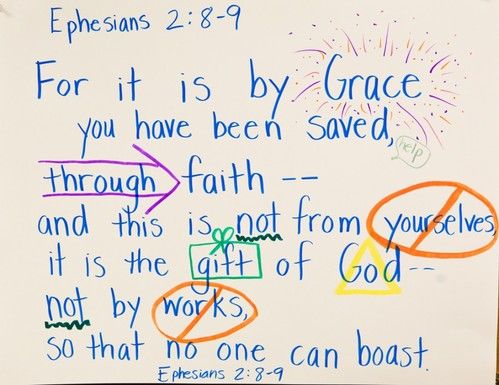 Ephesians 2:8-9
For it is by Grace
you have been saved,
help
through faith --
and this is not from yourselves,
it is the gift of God--
not by works,
so that no one can boast.
Ephesians 2:8-9